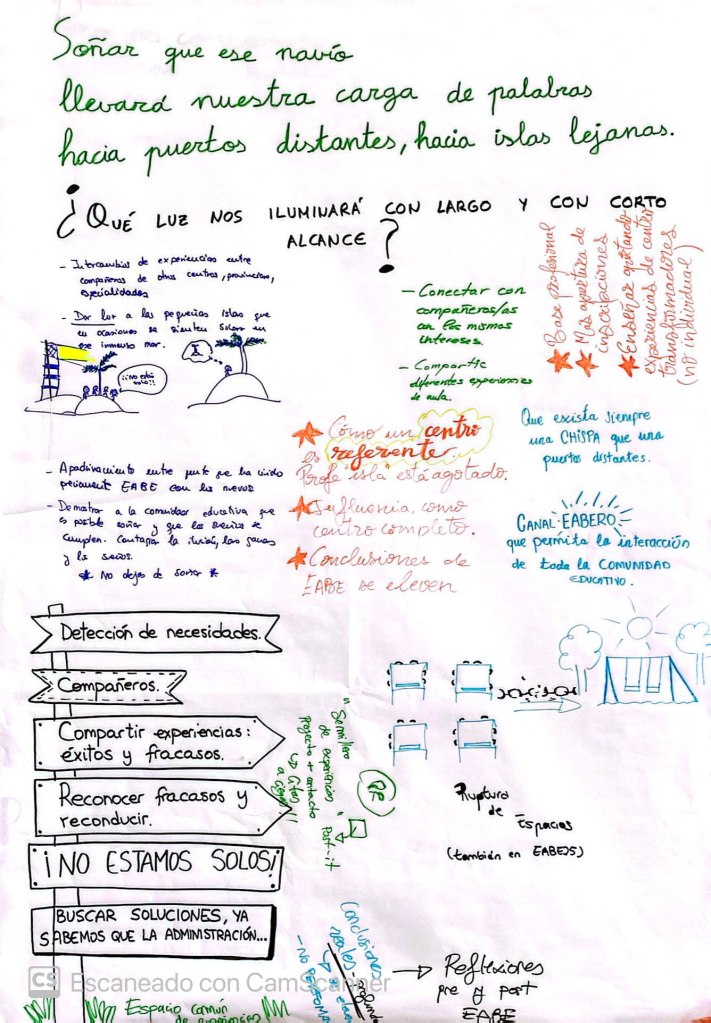 Soñar que ese navío
llevará nuestra carga de palabras
hacia puertos distantes, hacia islas lejanas.
¿QUÉ LUZ NOS ILUMINARÁ CON LARGO Y CON CORTO
ALCANCE?
- Intercambios de experiencias entre
compañeros de otros centros, provincias,
especialidades
- Dar luz a las pequeñas islas que
en ocasiones se sienten solas en
ese inmenso mar.
¡¡No estás
solo!!
- Conectar con
compañeros/as
con los mismos
intereses.
- Compartir
diferentes experiencias
de aula.
Base profesional
Más apertura de
inscripciones
Enseñar aportando
experiencias de centro
transformadores
(no individual)
- Apadrinamiento entre gente que ha vivido
previamente EABE con los nuevos
- Demostrar a la comunidad educativa que
es posible soñar y que los sueños se
cumplen. Contagiar la ilusión, las ganas
y los
* No dejes de soñar *
Cómo un centro
es referente.
Profe "isla" está agotado.
Influencia como
centro completo.
Conclusiones de
EABE se eleven
Que exista siempre
una CHISPA que una
puertos distantes.
CANAL EABERO
que permita la interacción
de toda la COMUNIDAD
EDUCATIVO.
Detección de necesidades.
Compañeros.
Compartir experiencias:
éxitos y fracasos.
Reconocer fracasos y
reconducir.
¡NO ESTAMOS SOLOS!
BUSCAR SOLUCIONES, YA
SABEMOS QUE LA ADMINISTRACIÓN...
Espacio común
de
"Semillero
de experiencias"
Proyecto + contacto
Post-it
Ruptura
de
Espacios
(también en EABEJS)
Conclusiones
reales
→ Reflexiones
pre y post
EABE
CS Escaneado con CamScanner